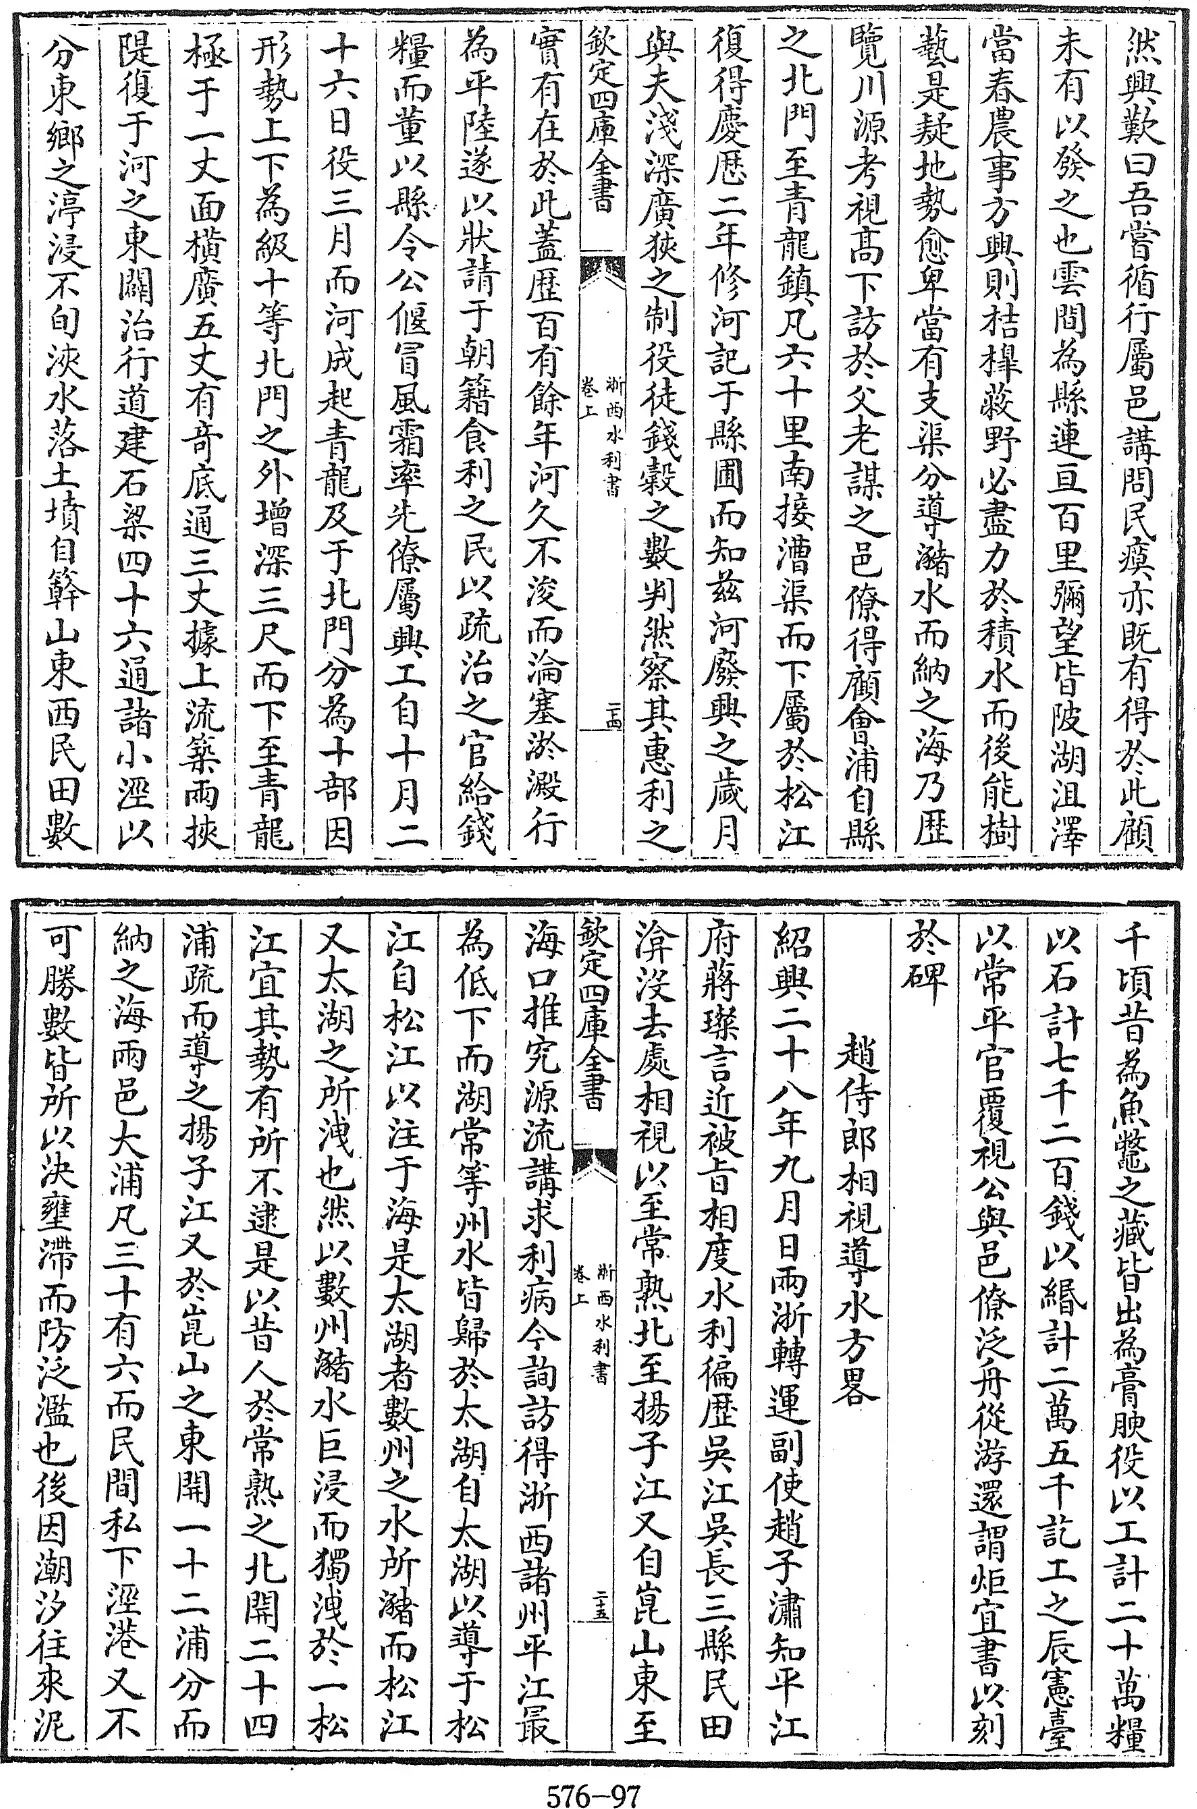 然興歎曰吾嘗循行屬邑講問民瘼亦既有得於此顧
未有以發之也雲間為縣連亘百里彌望皆陂湖沮澤
當春農事方興則桔橰蔽野必盡力於積水而後能樹
藝是疑地勢愈卑當有支渠分導瀦水而納之海乃歴
覽川源考視髙下訪於父老謀之邑僚得顧會浦自縣
之北門至青龍鎮凡六十里南接漕渠而下屬於松江
復得慶厯二年修河記于縣圃而知兹河廢興之歲月
與夫淺深廣狹之制役徒錢榖之數判然察其惠利之
欽定四庫全書
浙西水利書
卷上
二十四
實有在於此蓋歴百有餘年河久不浚而淪塞淤澱行
為平陸遂以狀請于朝籍食利之民以疏治之官給錢
糧而董以縣令公偃冒風霜率先僚屬興工自十月二
十六日役三月而河成起青龍及于北門分為十部因
形勢上下為級十等北門之外增深三尺而下至青龍
極于一丈面橫廣五丈有竒底通三丈據上流築兩挾
隄復于河之東闢治行道建石梁四十六通諸小涇以
分東鄉之渟浸不旬浹水落土墳自簳山東西民田數
千頃昔為魚鼈之藏皆出為膏腴役以工計二十萬糧
以石計七千二百錢以緡計二萬五千訖工之辰憲臺
以常平官覆視公與邑僚泛舟從游還謂炬宜書以刻
於碑
趙侍郎相視導水方畧
紹興二十八年九月日兩浙轉運副使趙子潚知平江
府蔣璨言近被㫖相度水利徧歴吳江吳長三縣民田
渰沒去處相視以至常熟北至揚子江又自崑山東至
欽定四庫全書
浙西水利書
卷上
二十五
海口推究源流講求利病今詢訪得浙西諸州平江最
為低下而湖常等州水皆歸於太湖自太湖以導于松
江自松江以注于海是太湖者數州之水所瀦而松江
又太湖之所洩也然以數州瀦水巨浸而獨洩於一松
江宜其勢有所不逮是以昔人於常熟之北開二十四
浦疏而導之揚子江又於崑山之東開一十二浦分而
納之海兩邑大浦凡三十有六而民間私下涇港又不
可勝數皆所以決壅滯而防泛濫也後因潮汐往來泥
576-97